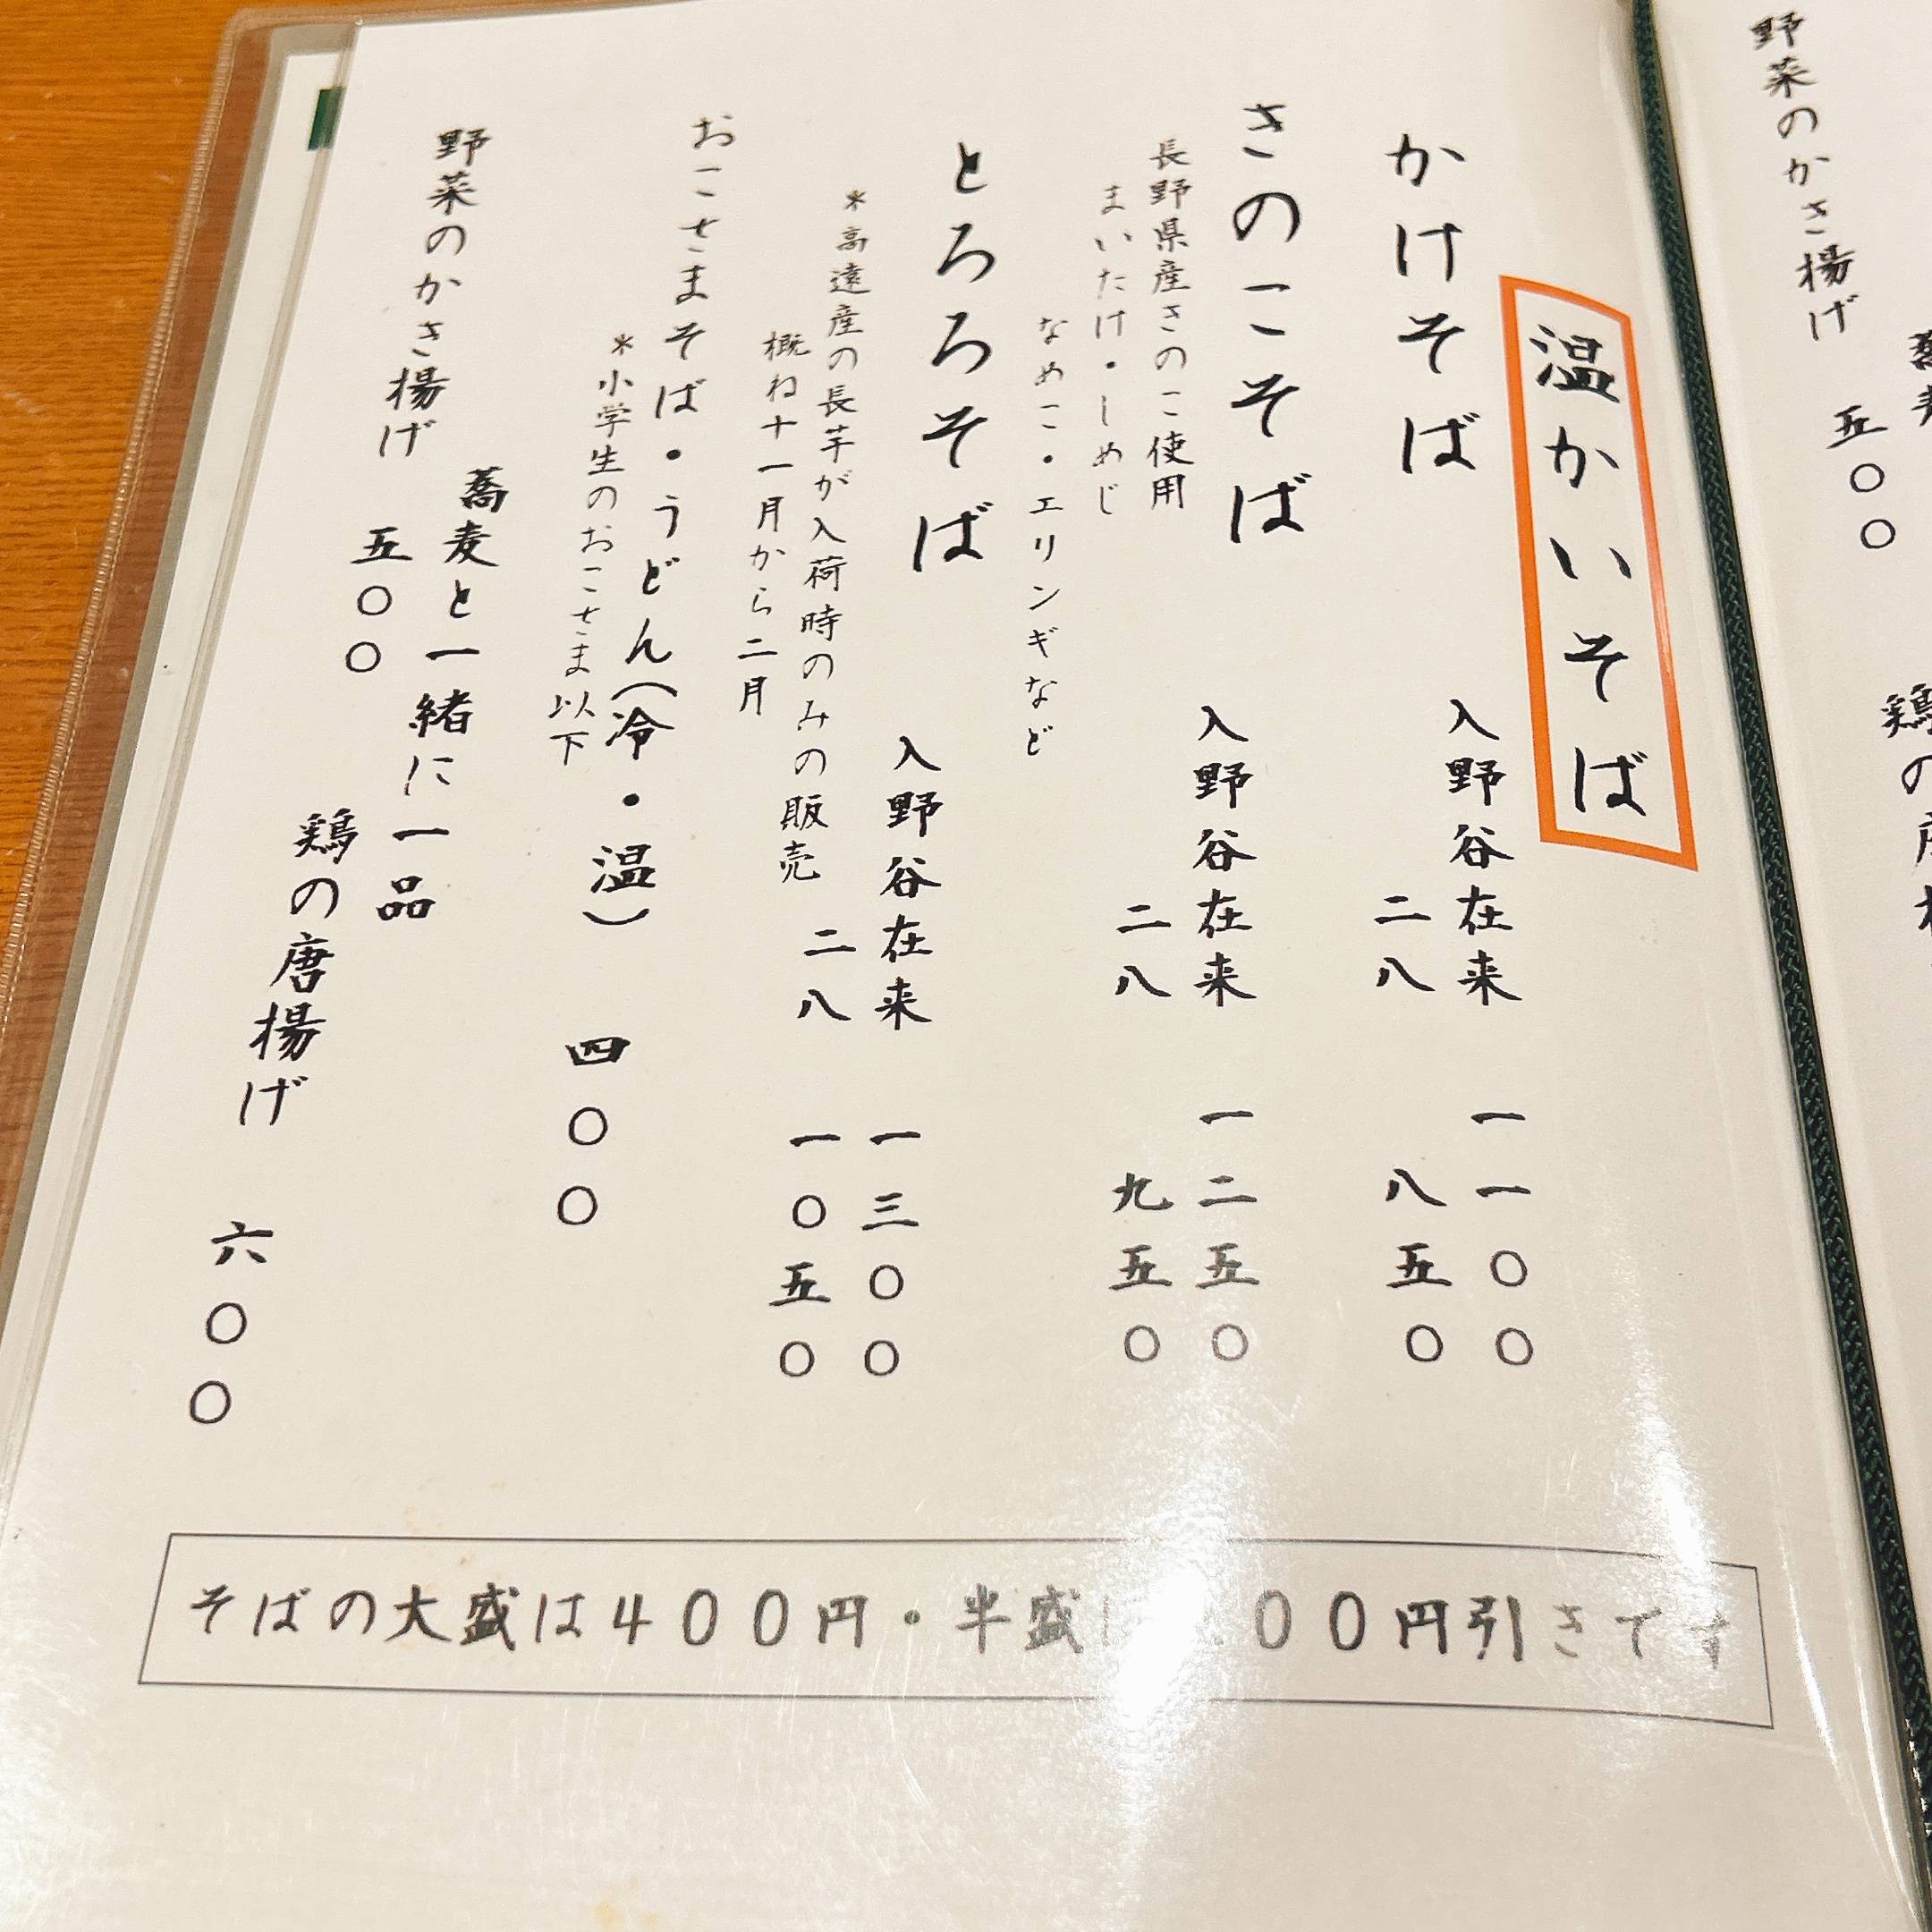 野菜のかき揚げ
五〇〇
温かいそば
かけそば
入野谷在来 一一〇〇
二八 八五〇
きのこそば
入野谷在来 一二五〇
長野県産きのこ使用
二八 九五〇
まいたけ・しめじ
なめこ・エリンギなど
とろろそば
入野谷在来 一三〇〇
＊高遠産の長芋が入荷時のみの販売
二八 一〇五〇
概ね十一月から二月
おこさまそば・うどん（冷・温） 四〇〇
＊小学生のおこさま以下
蕎麦と一緒に一品
野菜のかき揚げ
五〇〇
鶏の唐揚げ 六〇〇
そばの大盛は400円・半盛 00円引きです